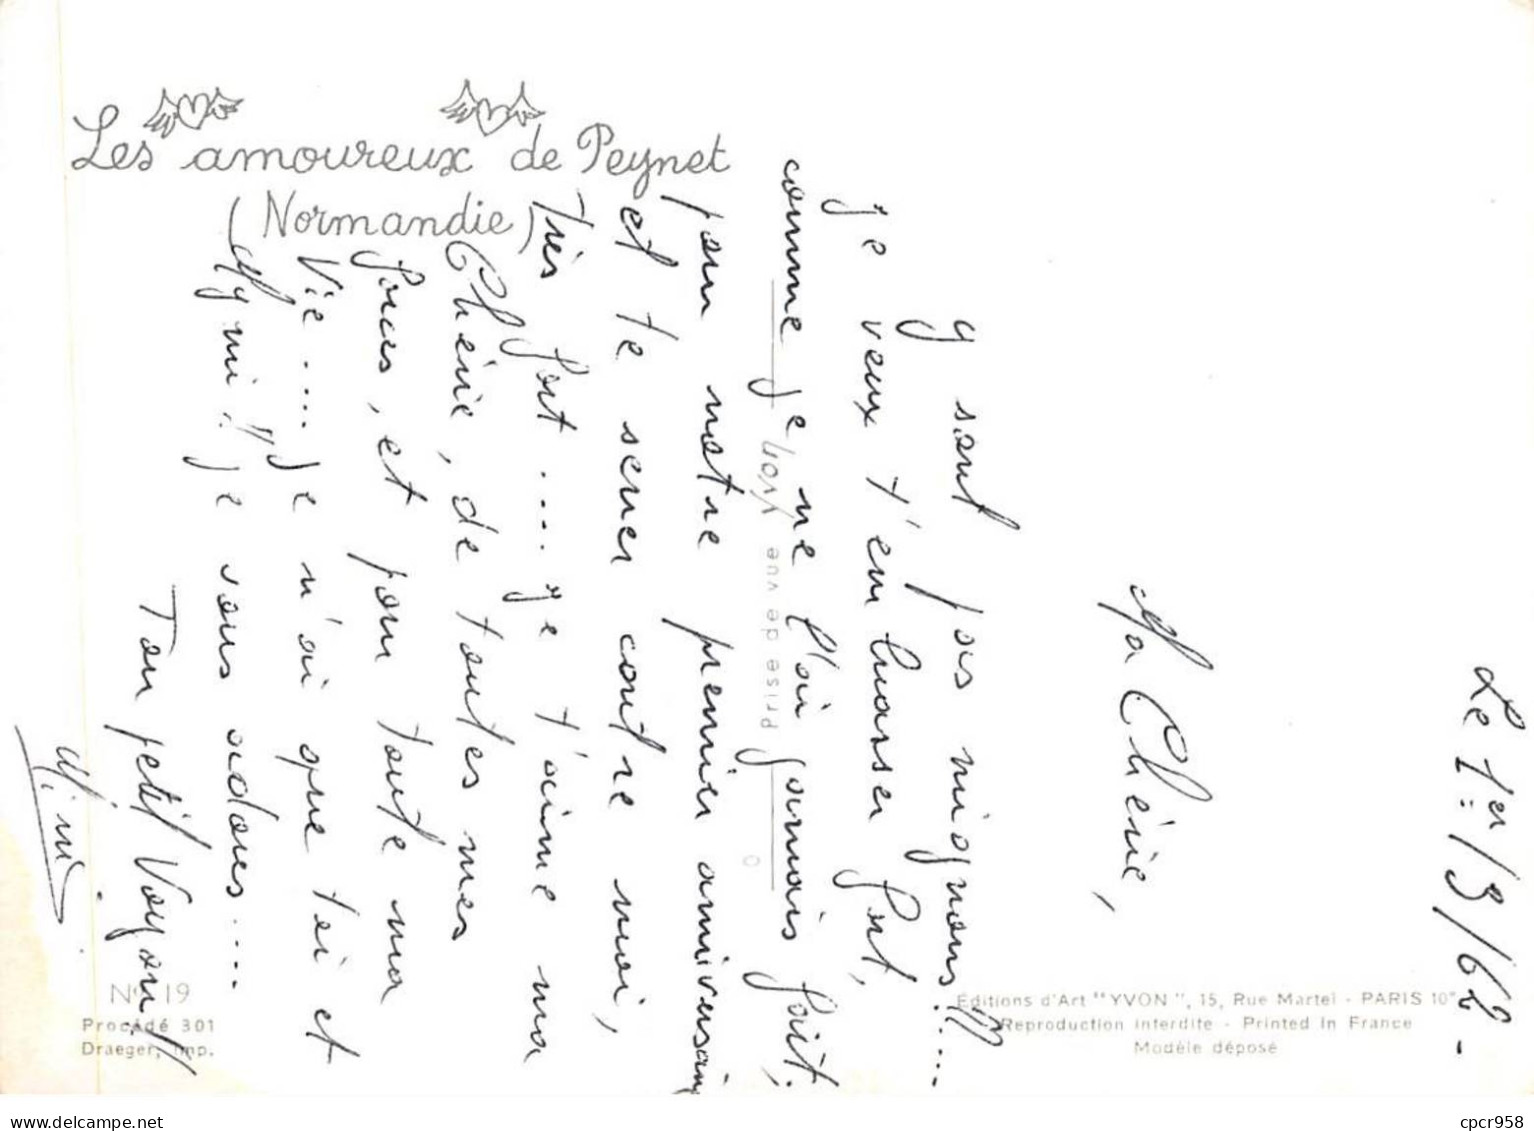 Les amoureux de Peynet
(Normandie)
Le 1er/9/62-
Ma Chérie,
Y sont pas mignons !!!....
Je veux t'embrasser fort,
comme je ne l'ai jamais fait;
pour notre premier anniversaire
et te serrer contre moi,
Très fort.... Je t'aime ma
Chérie, de toutes mes
forces, et pour toute ma
Vie.... Je n'ai que toi et
Mymi !! Je vous adores....
Ton petit Voyou !!
Mimi.
Prise de vue Yvon
N° 19
Procédé 301
Draeger, imp.
Éditions d'Art "YVON", 15, Rue Martel - PARIS 10e
Reproduction interdite - Printed in France
Modèle déposé
delcampe.net
cpcr958